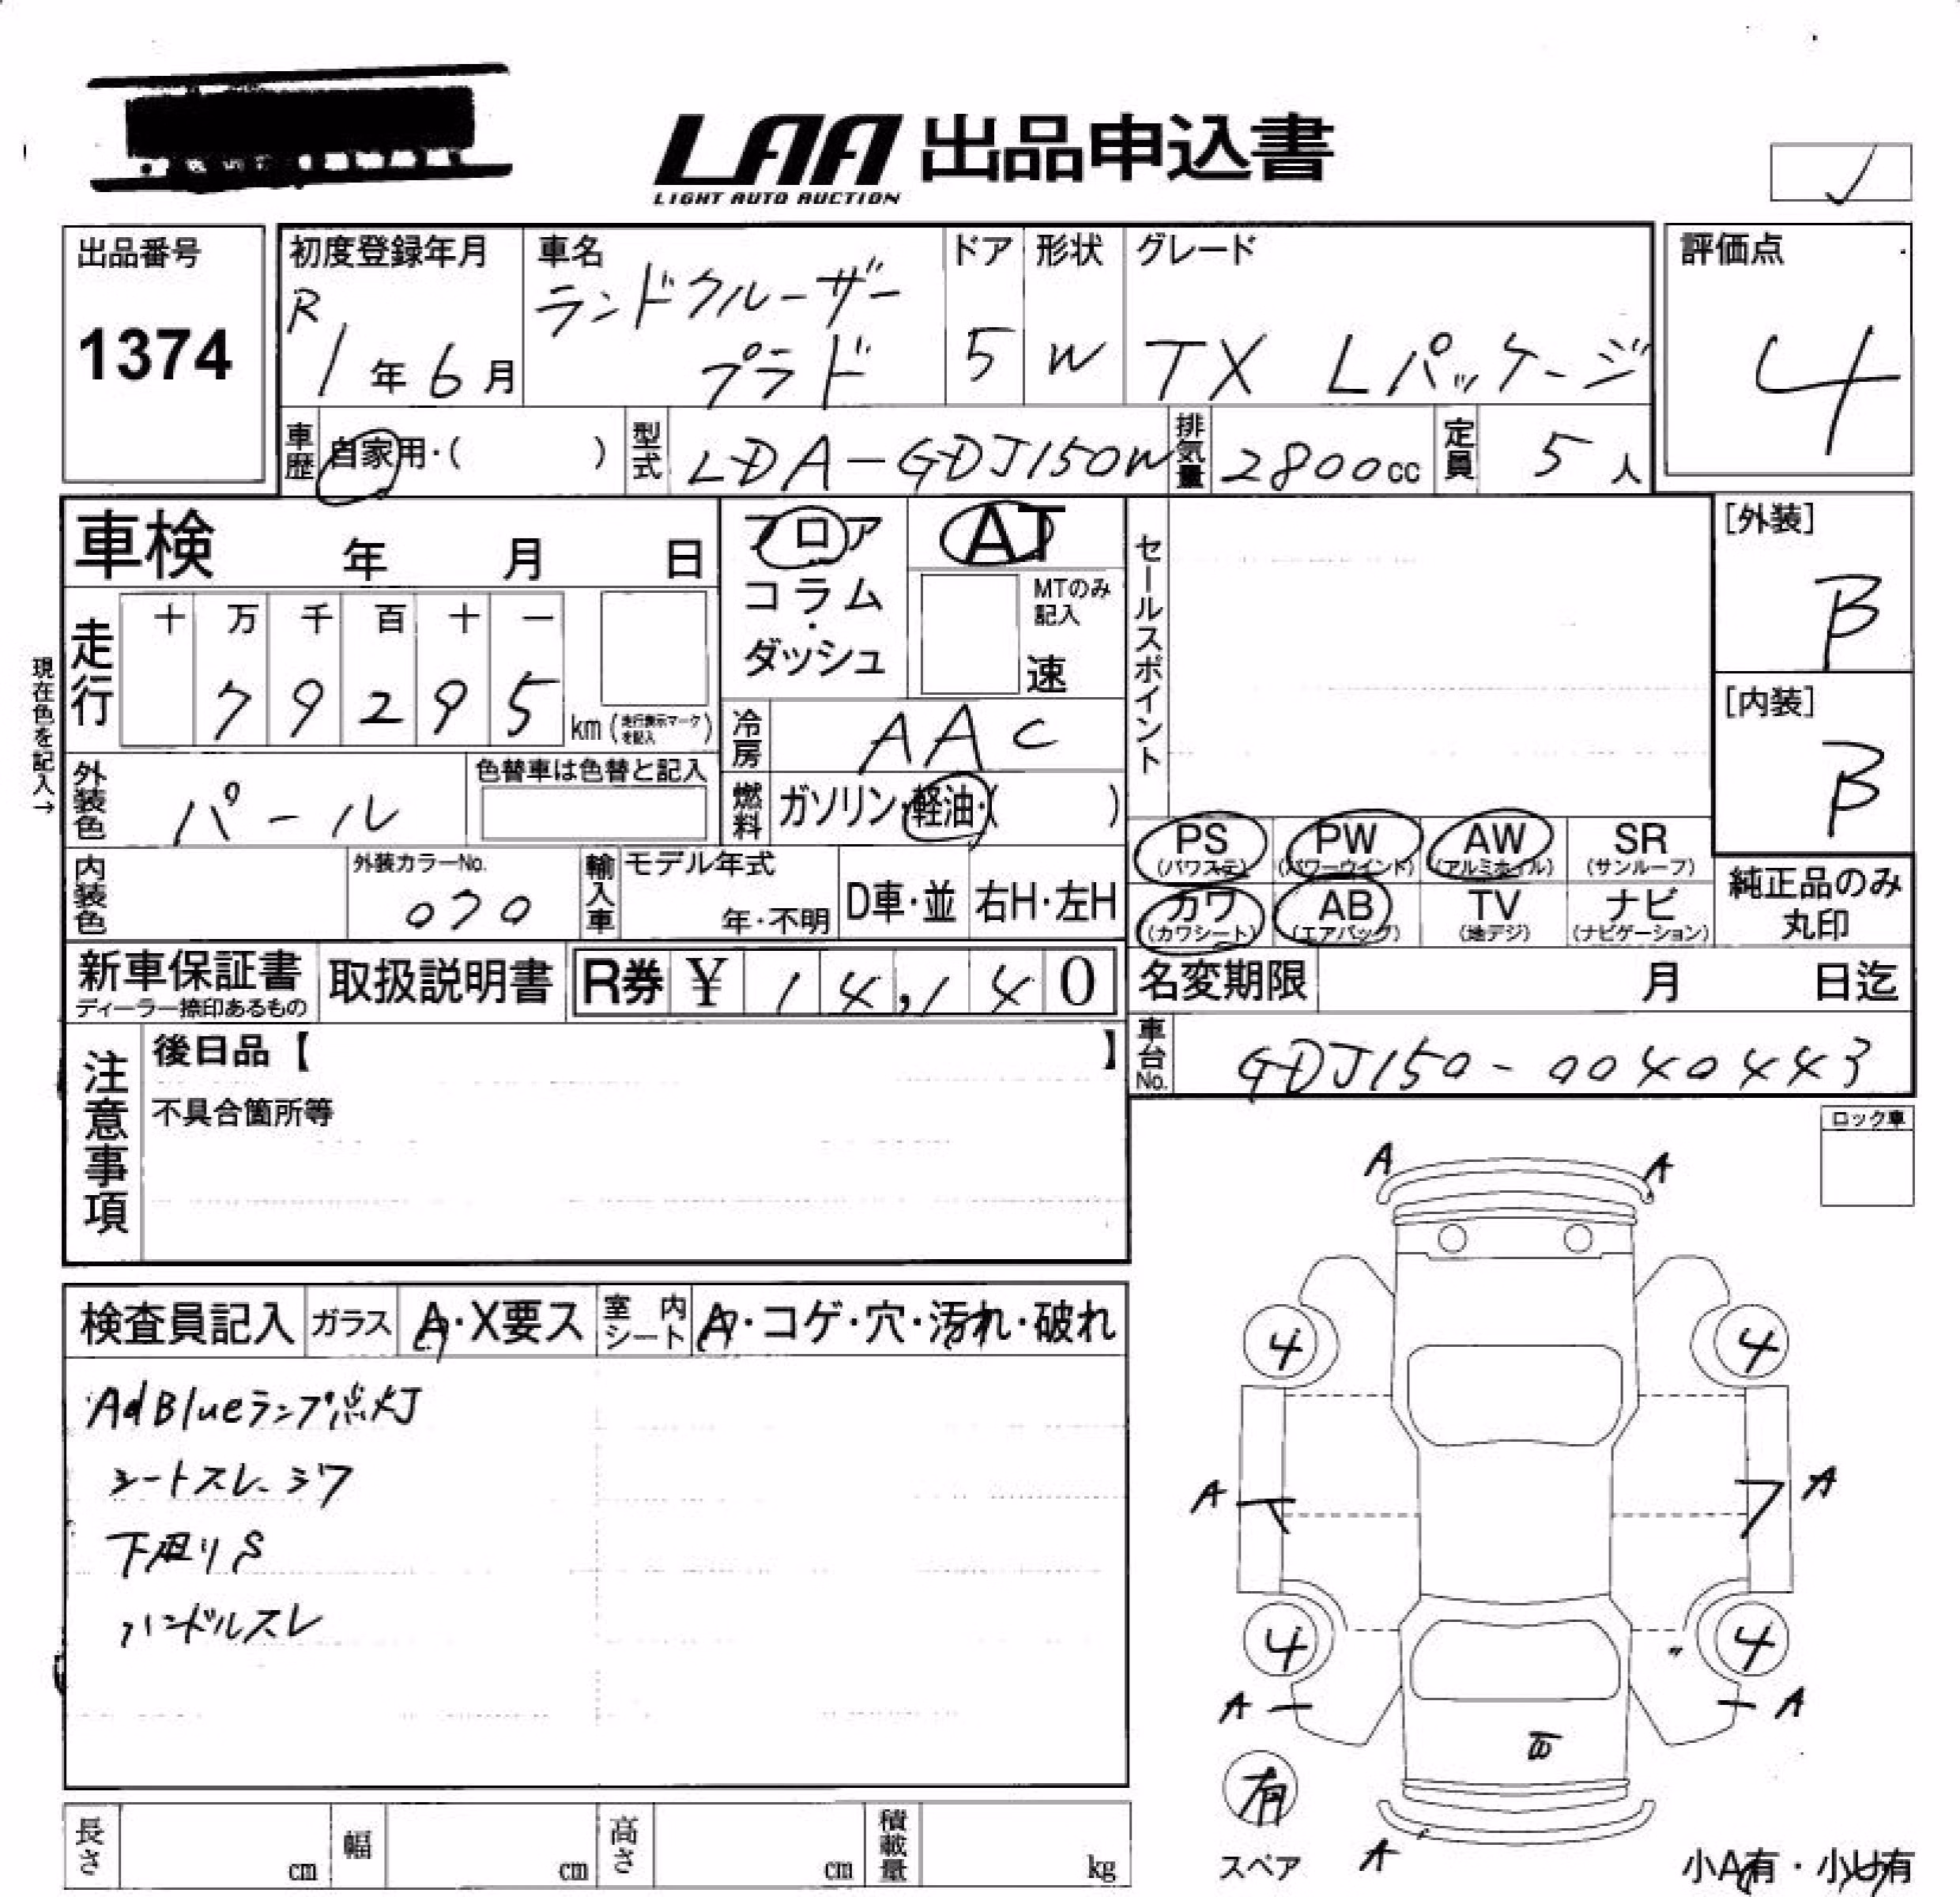 LAA 出品申込書
LIGHT AUTO AUCTION
出品番号
1374
初度登録年月
R
1年6月
車名
ランドクルーザー
プラド
ドア
5
形状
W
グレード
TX Lパッケージ
評価点
4
車歴 自家用・( )
型式 LDA-GDJ150W
排気量 2800cc
定員 5人
車検 年 月 日
現在色を記入→
走行
十 万 千 百 十 一
7 9 2 9 5
km(走行表示マークを記入)
外装色 パール
色替車は色替と記入
内装色
外装カラーNo.
070
フロア
コラム
・
ダッシュ
AT
MTのみ
記入
速
冷房 AAC
燃料 ガソリン・軽油・( )
輸入車
モデル年式
年・不明
D車・並
右H・左H
セールスポイント
[外装]
B
[内装]
B
PS
(パワステ)
PW
(パワーウインド)
AW
(アルミホイル)
SR
(サンルーフ)
カワ
(カワシート)
AB
(エアバッグ)
TV
(地デジ)
ナビ
(ナビゲーション)
純正品のみ
丸印
新車保証書
ディーラー捺印あるもの
取扱説明書
R券 ¥ 14,140
名変期限 月 日迄
車台No. GDJ150-0040443
注意事項
後日品【 】
不具合箇所等
ロック車
検査員記入
ガラス A・X要ス
室内シート A・コゲ・穴・汚れ・破れ
AdBlueランプ点灯
シートスレ、シワ
下廻りS
ハンドルスレ
A A
4 4
A A
4 4
A A
有
スペア
A
小A有・小U有
長さ cm
幅 cm
高さ cm
積載量 kg